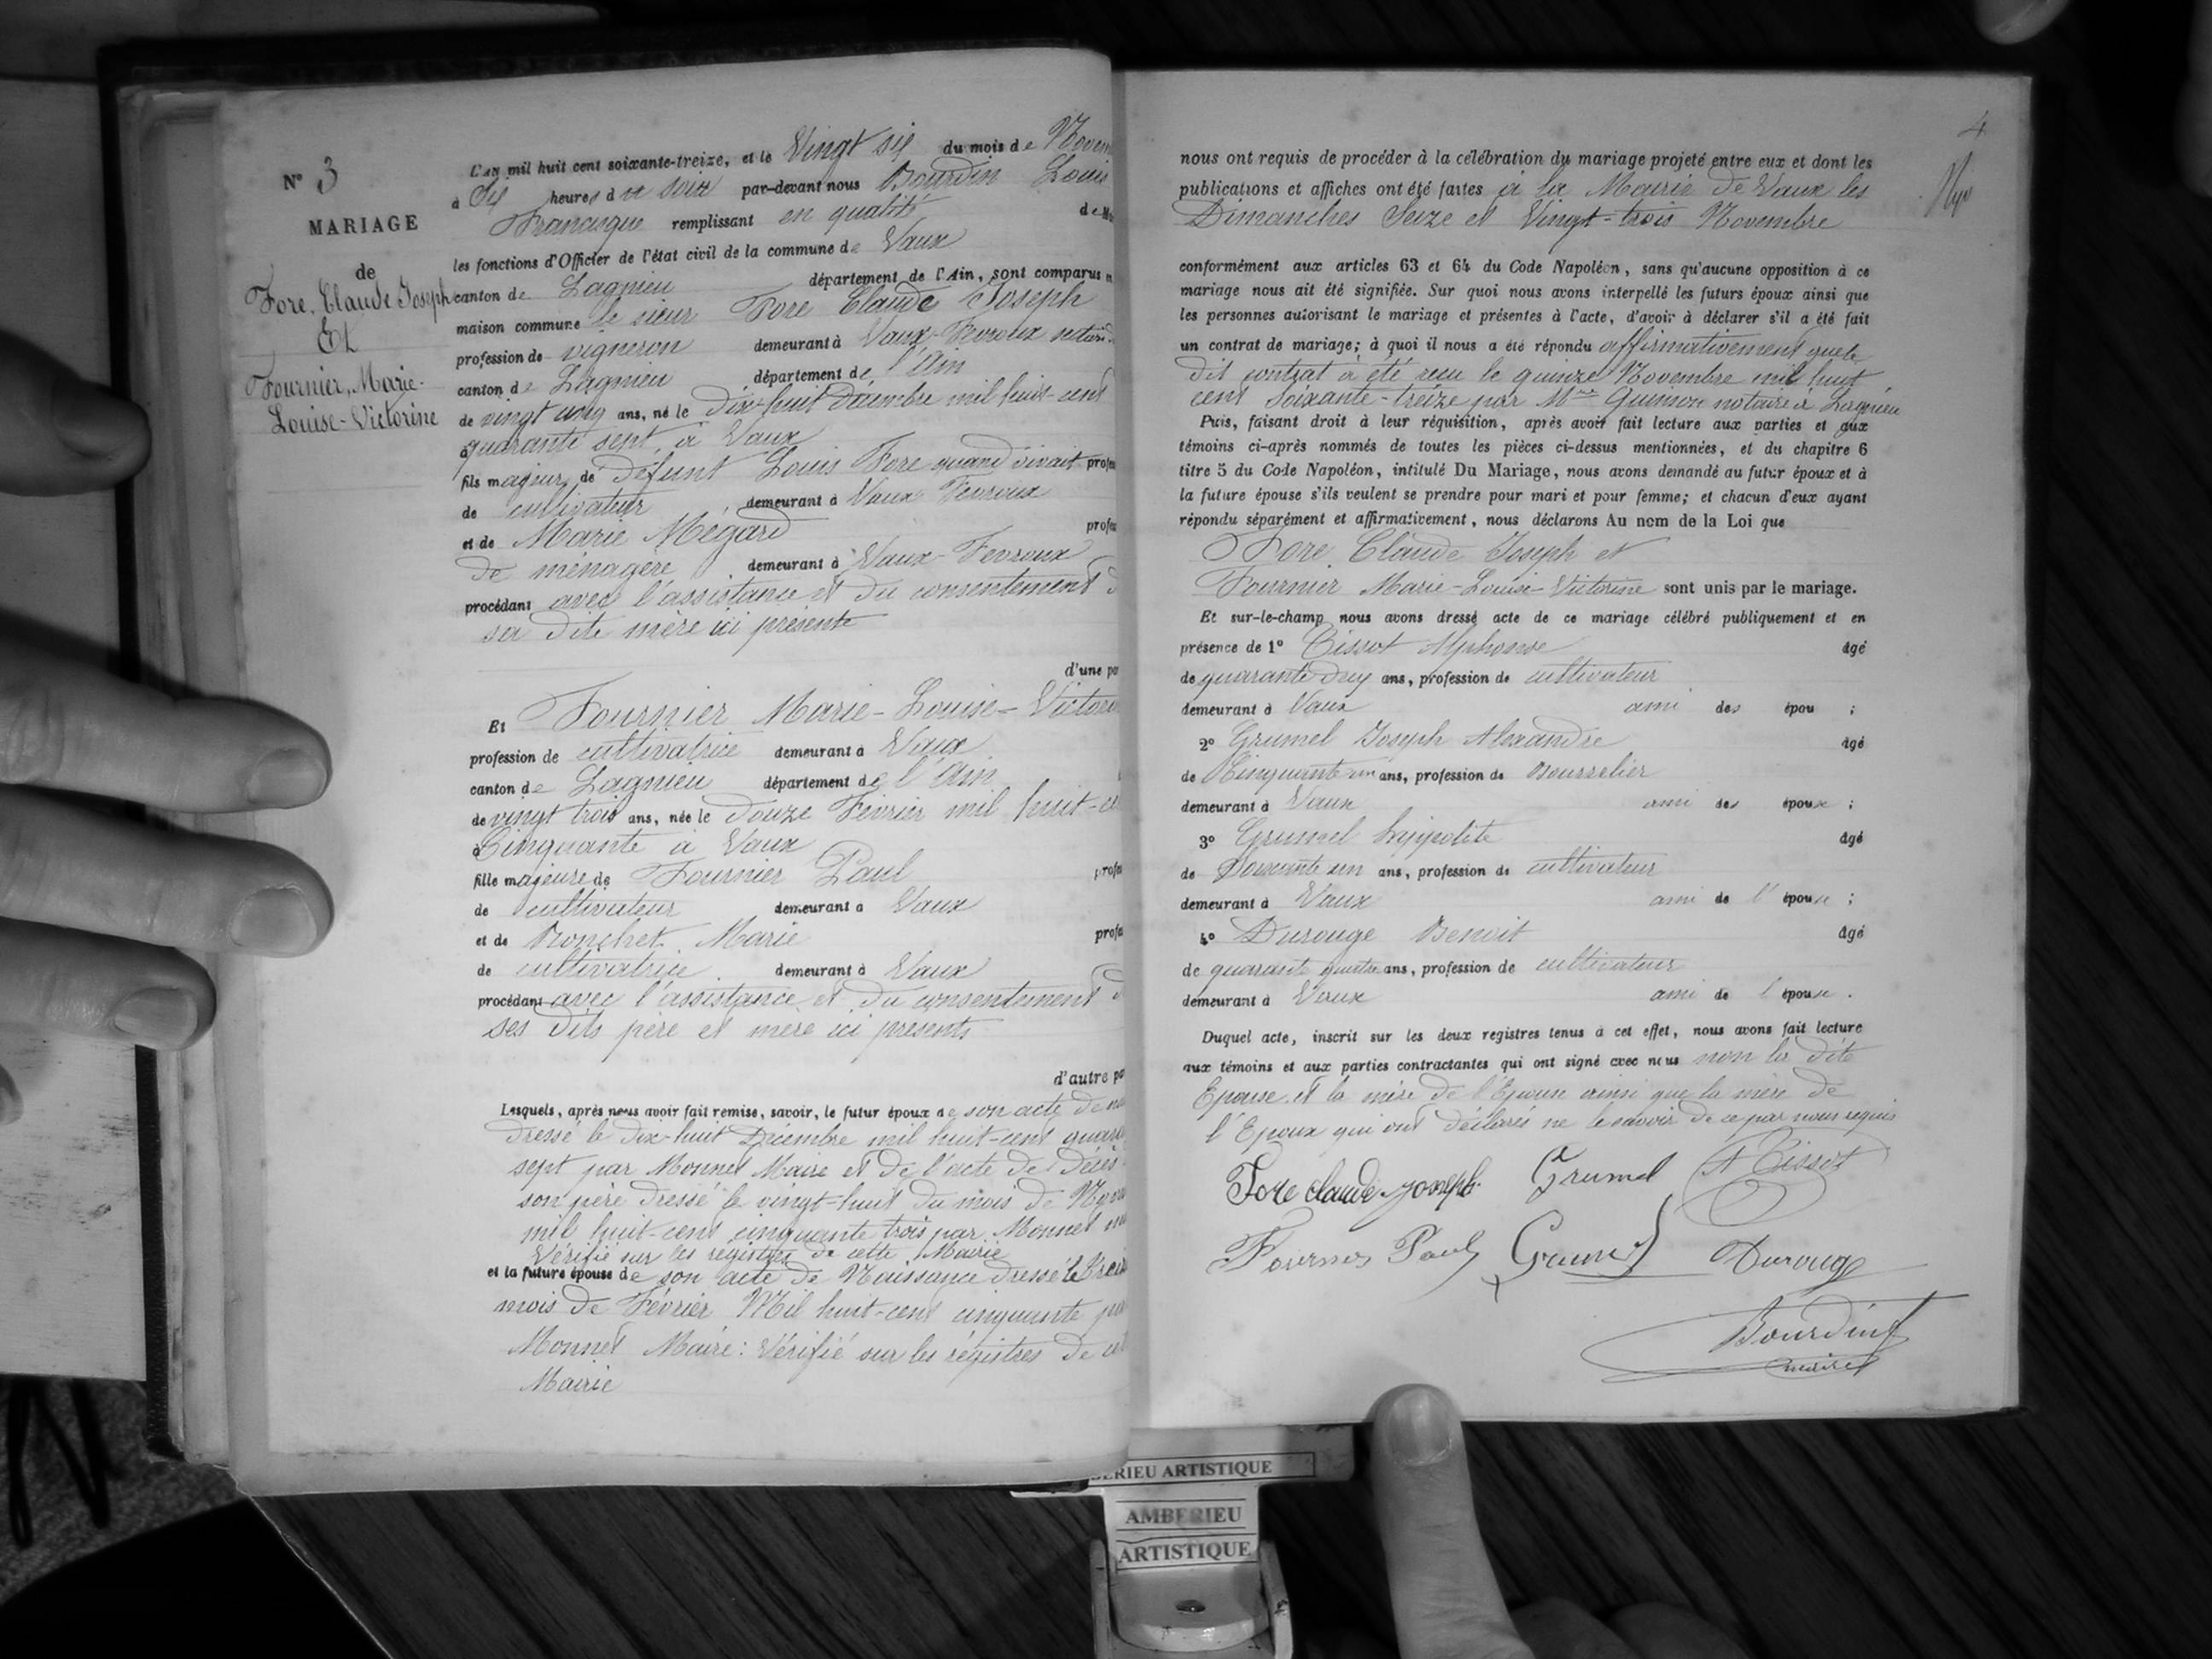 N° 3
MARIAGE
de
Fore, Claude Joseph
Et
Fournier, Marie-
Louise-Victorine
L'an mil huit cent soixante-treize, et le Vingt six du mois de Novem
à Six heures du soir par-devant nous Bourdin Louis
Francisque remplissant en qualité de M
les fonctions d'Officier de l'état civil de la commune de Vaux
canton de Lagnieu département de l'Ain, sont comparus
maison commune le sieur Fore Claude Joseph
profession de vigneron demeurant à Vaux-Fevroux
canton de Lagnieu département de l'Ain
de vingt cinq ans, né le dix-huit décembre mil huit-cent
quarante sept, à Vaux
fils majeur de défunt Louis Fore quand vivait profes
de cultivateur demeurant à Vaux Fevroux
et de Marie Mégard profes
de ménagère demeurant à Vaux-Fevroux
procédant avec l'assistance et du consentement d
sa dite mère ici présente
d'une pa
Et Fournier Marie-Louise-Victorin
profession de cultivatrice demeurant à Vaux
canton de Lagnieu département de l'Ain
de vingt trois ans, née le douze Février mil huit-ce
Cinquante à Vaux
fille majeure de Fournier Paul profes
de cultivateur demeurant à Vaux
et de Ronchet Marie profes
de cultivatrice demeurant à Vaux
procédant avec l'assistance et du consentement d
ses dits père et mère ici présents
d'autre pa
Lesquels, après nous avoir fait remise, savoir, le futur époux de son acte de na
dressé le dix-huit Décembre mil huit-cent quara
sept par Monnet Maire et de l'acte de décès
son père dressé le vingt-huit du mois de Nov
mil huit-cent cinquante trois par Monnet
Vérifié sur les registres de cette Mairie
et la future épouse de son acte de Naissance dressé le treiz
mois de Février Mil huit-cent cinquante pa
Monnet Maire: Vérifié sur les régistres de cet
Mairie
4
nous ont requis de procéder à la célébration du mariage projeté entre eux et dont les
publications et affiches ont été faites à la Mairie de Vaux les
Dimanches Seize et Vingt-trois Novembre
conformément aux articles 63 et 64 du Code Napoléon, sans qu'aucune opposition à ce
mariage nous ait été signifiée. Sur quoi nous avons interpellé les futurs époux ainsi que
les personnes autorisant le mariage et présentes à l'acte, d'avoir à déclarer s'il a été fait
un contrat de mariage; à quoi il nous a été répondu affirmativement que le
dit contrat a été reçu le quinze Novembre mil huit
cent soixante-treize par Me Guinon notaire à Lagnieu
Puis, faisant droit à leur réquisition, après avoir fait lecture aux parties et aux
témoins ci-après nommés de toutes les pièces ci-dessus mentionnées, et du chapitre 6
titre 5 du Code Napoléon, intitulé Du Mariage, nous avons demandé au futur époux et à
la future épouse s'ils veulent se prendre pour mari et pour femme; et chacun d'eux ayant
répondu séparément et affirmativement, nous déclarons Au nom de la Loi que
Fore, Claude Joseph et
Fournier Marie-Louise-Victorine sont unis par le mariage.
Et sur-le-champ nous avons dressé acte de ce mariage célébré publiquement et en
présence de 1° Tissot Alphonse âgé
de quarante deux ans, profession de cultivateur
demeurant à Vaux ami des épou ;
2° Grumel Joseph Alexandre âgé
de Cinquante un ans, profession de Bourrelier
demeurant à Vaux ami des époux ;
3° Grumel hippolite âgé
de Soixante un ans, profession de cultivateur
demeurant à Vaux ami de l'épouse ;
4° Durouge Benoit âgé
de quarante quatre ans, profession de cultivateur
demeurant à Vaux ami de l'épouse .
Duquel acte, inscrit sur les deux registres tenus à cet effet, nous avons fait lecture
aux témoins et aux parties contractantes qui ont signé avec nous non la dite
Epouse et la mère de l'Epouse ainsi que la mère de
l'Epoux qui ont déclarés ne le savoir de ce par nous requis
Fore claude joseph Grumel A Tissot
Fournier Paul Grumel Durouge
Bourdin
maire
BERIEU ARTISTIQUE
AMBERIEU
ARTISTIQUE